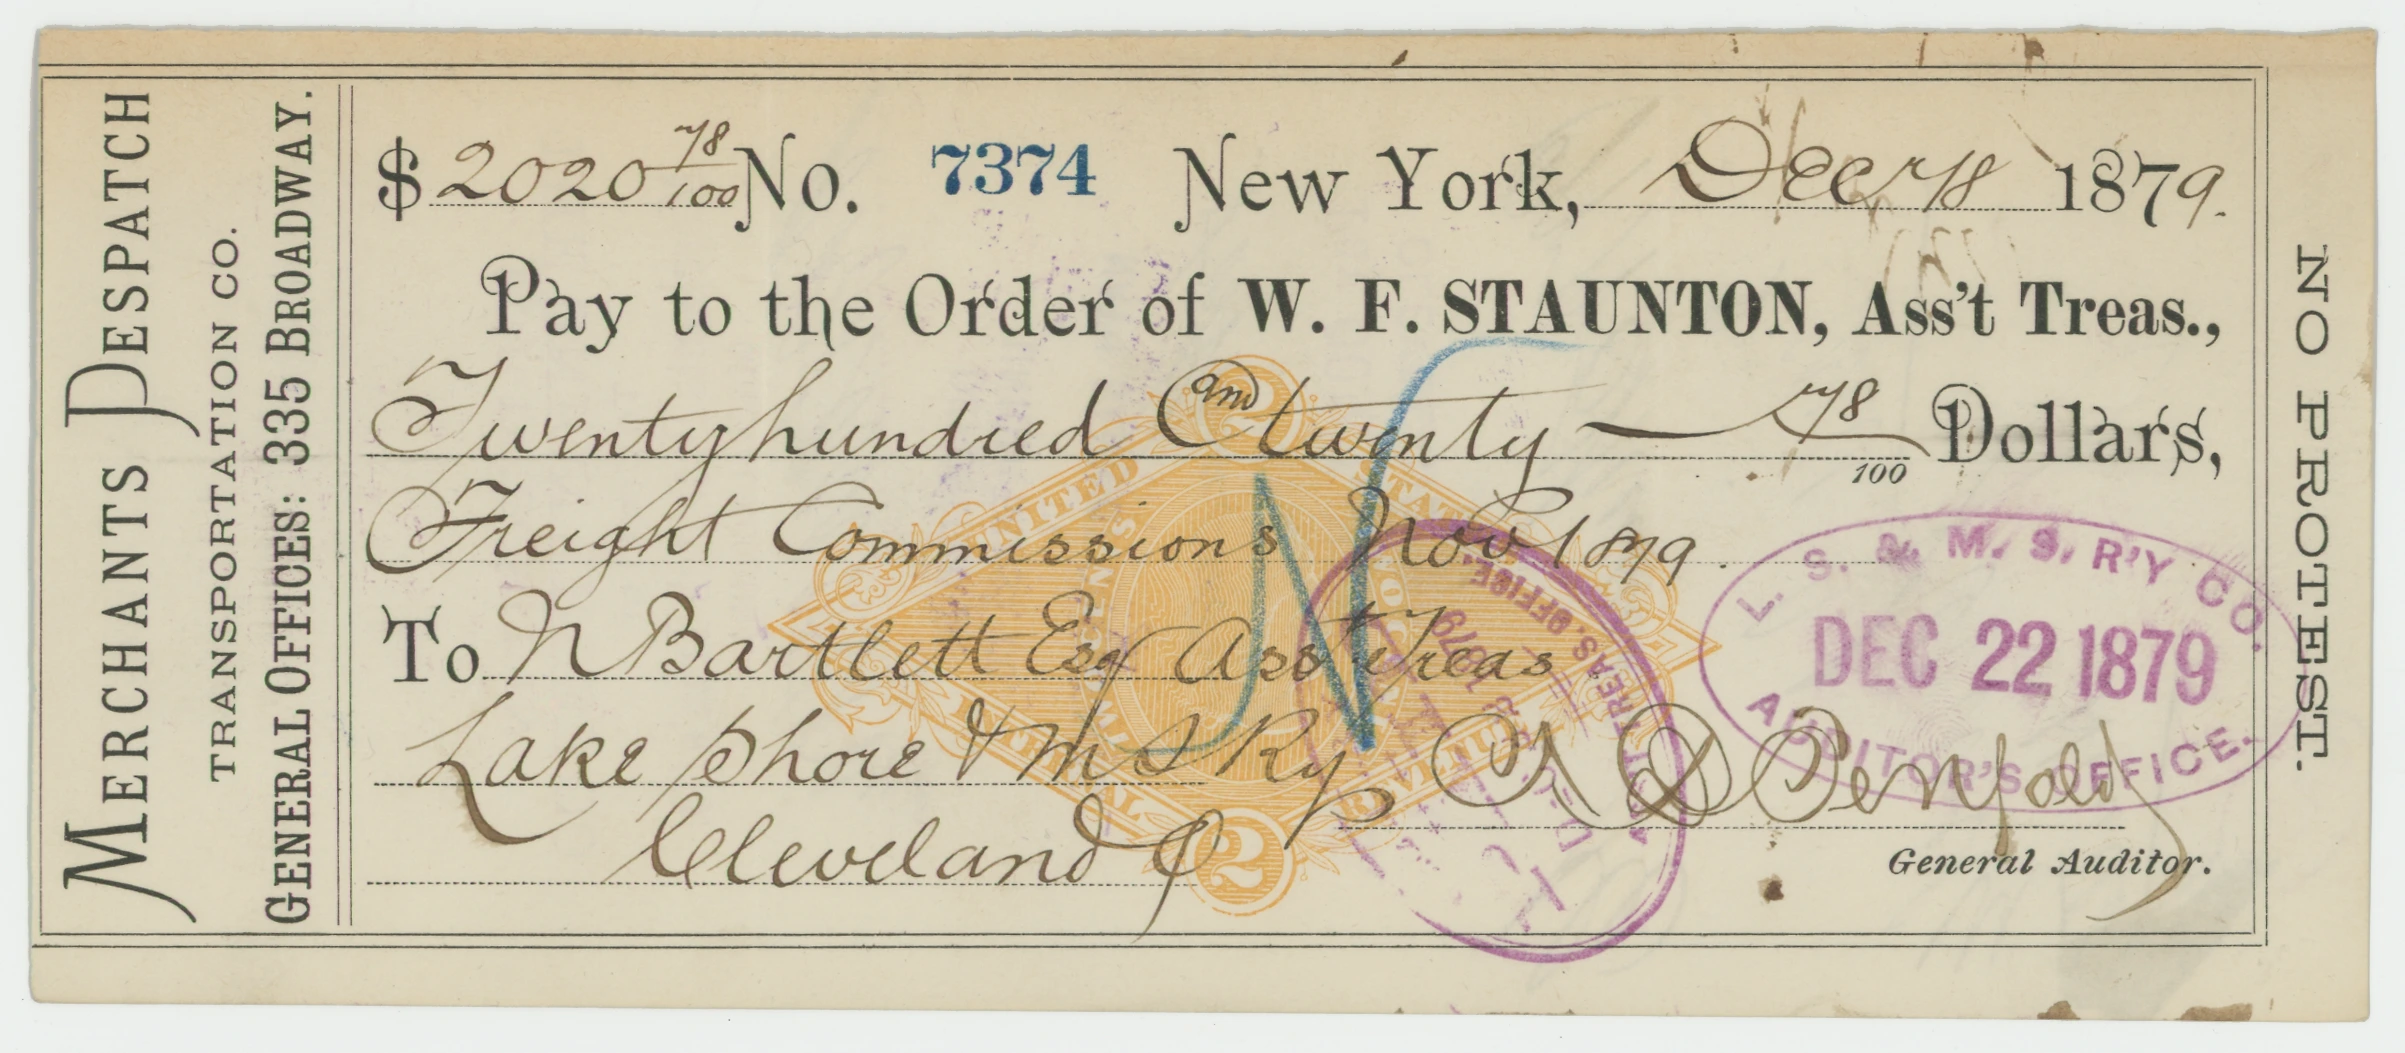 MERCHANTS DESPATCH
TRANSPORTATION CO.
GENERAL OFFICES: 335 BROADWAY.
$2020 78/100 No. 7374 New York, Dec 18 1879.
Pay to the Order of W. F. STAUNTON, Ass't Treas.,
Twenty hundred and twenty 78/100 Dollars,
Freight Commissions Nov 1879.
To N Bartlett Esq Asst Treas
Lake Shore & M S Ry
Cleveland O
Penfold
General Auditor.
NO PROTEST.
L. S. & M. S. R'Y CO.
DEC 22 1879
AUDITOR'S OFFICE.
ASS'T TREAS. OFFICE.
1879
UNITED STATES
INTERNAL REVENUE
2
2
N